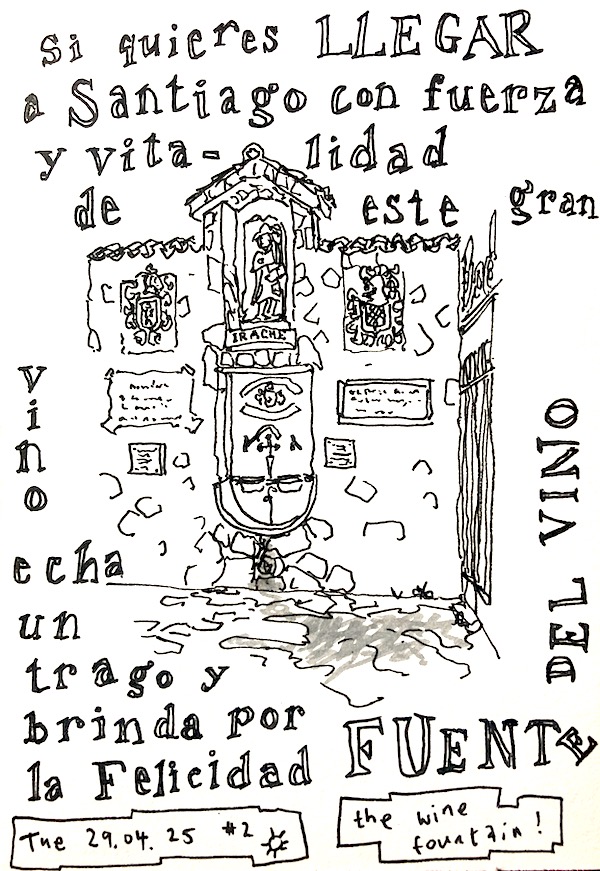 si quieres LLEGAR
a Santiago con fuerza
y vita-lidad
de este gran
vino
echa
un
trago y
brinda por
la Felicidad
IRACHE
FUENTE
DEL VINO
Tue 29.04.25 #2
the wine
fountain!